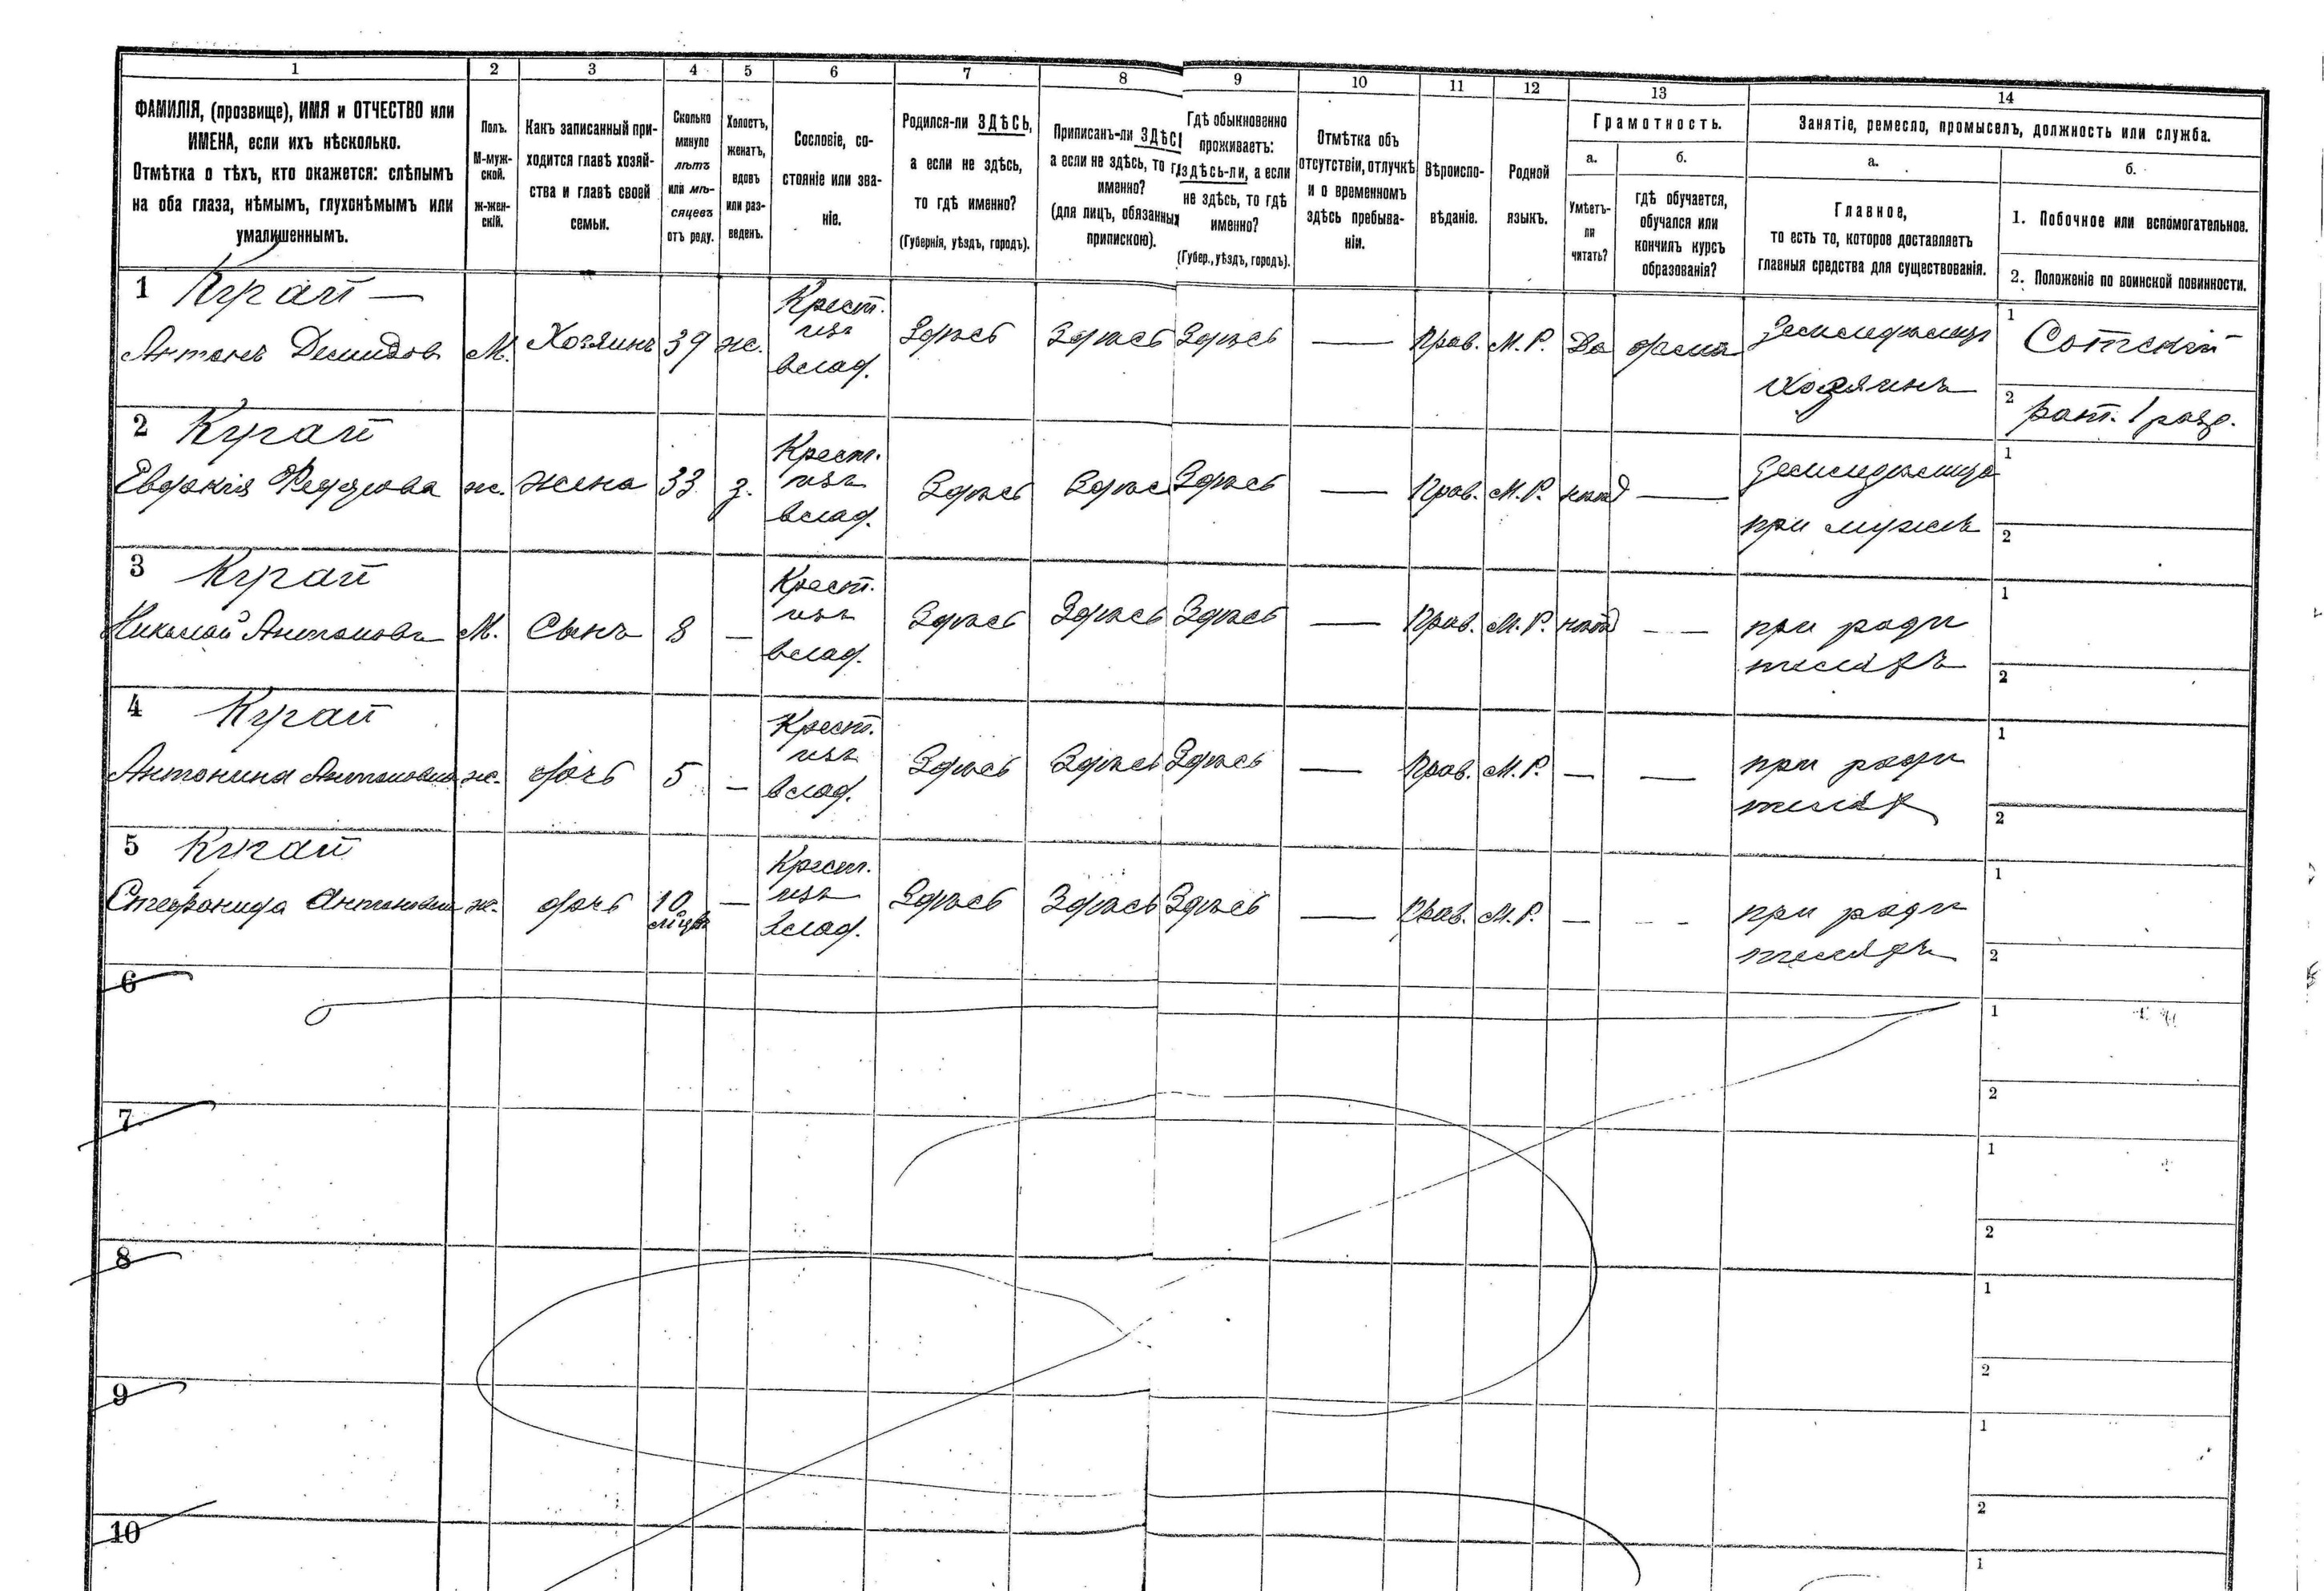 1 2 3 4 5 6 7 8 9 10 11 12 13 14
ФАМИЛІЯ, (прозвище), ИМЯ и ОТЧЕСТВО или
ИМЕНА, если ихъ нѣсколько.
Отмѣтка о тѣхъ, кто окажется: слѣпымъ
на оба глаза, нѣмымъ, глухонѣмымъ или
умалишеннымъ.
Полъ.
М-муж-
ской.
Ж-жен-
скій.
Какъ записанный при-
ходится главѣ хозяй-
ства и главѣ своей
семьи.
Сколько
минуло
лѣтъ
или мѣ-
сяцевъ
отъ роду.
Холостъ,
женатъ,
вдовъ
или раз-
веденъ.
Сословіе, со-
стояніе или зва-
ніе.
Родился-ли ЗДѢСЬ,
а если не здѣсь,
то гдѣ именно?
(Губернія, уѣздъ, городъ).
Приписанъ-ли ЗДѢСЬ
а если не здѣсь, то гдѣ
именно?
(для лицъ, обязанныхъ
припискою).
Гдѣ обыкновенно
проживаетъ:
здѣсь-ли, а если
не здѣсь, то гдѣ
именно?
(Губер., уѣздъ, городъ).
Отмѣтка объ
отсутствіи, отлучкѣ
и о временномъ
здѣсь пребыва-
ніи.
Вѣроиспо-
вѣданіе.
Родной
языкъ.
Грамотность.
а.
Умѣетъ-
ли
читать?
б.
гдѣ обучается,
обучался или
кончилъ курсъ
образованія?
Занятіе, ремесло, промыселъ, должность или служба.
а.
Главное,
то есть то, которое доставляетъ
главныя средства для существованія.
б.
1. Побочное или вспомогательное.
2. Положеніе по воинской повинности.
1 Кугай —
Антонъ Демидов М. Хозяинъ 39 ж. Крест. изъ влад. Здѣсь Здѣсь Здѣсь — Прав. М. Р. Да дома земледѣлецъ хозяинъ
1 Сотскій
2 Рат. 1 разр.
2 Кугай
Евдокія Федорова ж. жена 33 з. Крест. изъ влад. Здѣсь Здѣсь Здѣсь — Прав. М. Р. нѣтъ — земледѣлица при мужѣ
1
2
3 Кугай
Николай Антоновъ М. Сынъ 8 — Крест. изъ влад. Здѣсь Здѣсь Здѣсь — Прав. М. Р. нѣтъ — — при роди телях ъ
1
2
4 Кугай
Антонина Антоновна ж. дочь 5 — Крест. изъ влад. Здѣсь Здѣсь Здѣсь — Прав. М. Р. — — при роди телях
1
2
5 Кугай
Стефанида Антоновна ж. дочь 10 мѣцев — Крест. изъ влад. Здѣсь Здѣсь Здѣсь — Прав. М. Р. — — при роди теляхъ
1
2
6
1
2
7
1
2
8
1
2
9
1
2
10
1